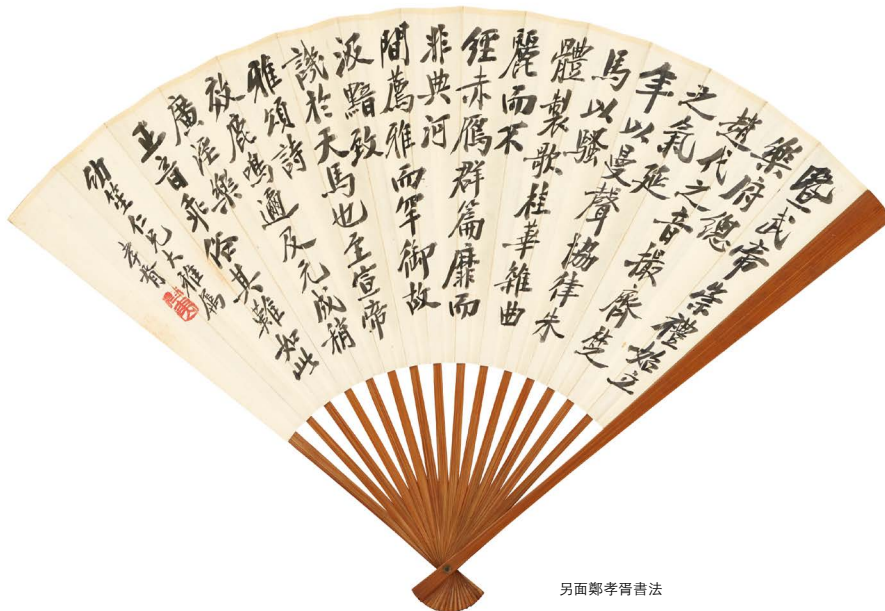 暨武帝崇禮始立
樂府總
趙代之音撮齊楚
之氣延
年以曼聲協律朱
馬以騷
體製歌桂華雜曲
麗而不
經赤鴈群篇靡而
非典河
間薦雅而罕御故
汲黯致
譏於天馬也至宣帝
雅頌詩
效鹿鳴邇及元成稍
廣淫樂
正音乖俗其難如此
幼笙仁兄大雅屬
孝胥
另面鄭孝胥書法